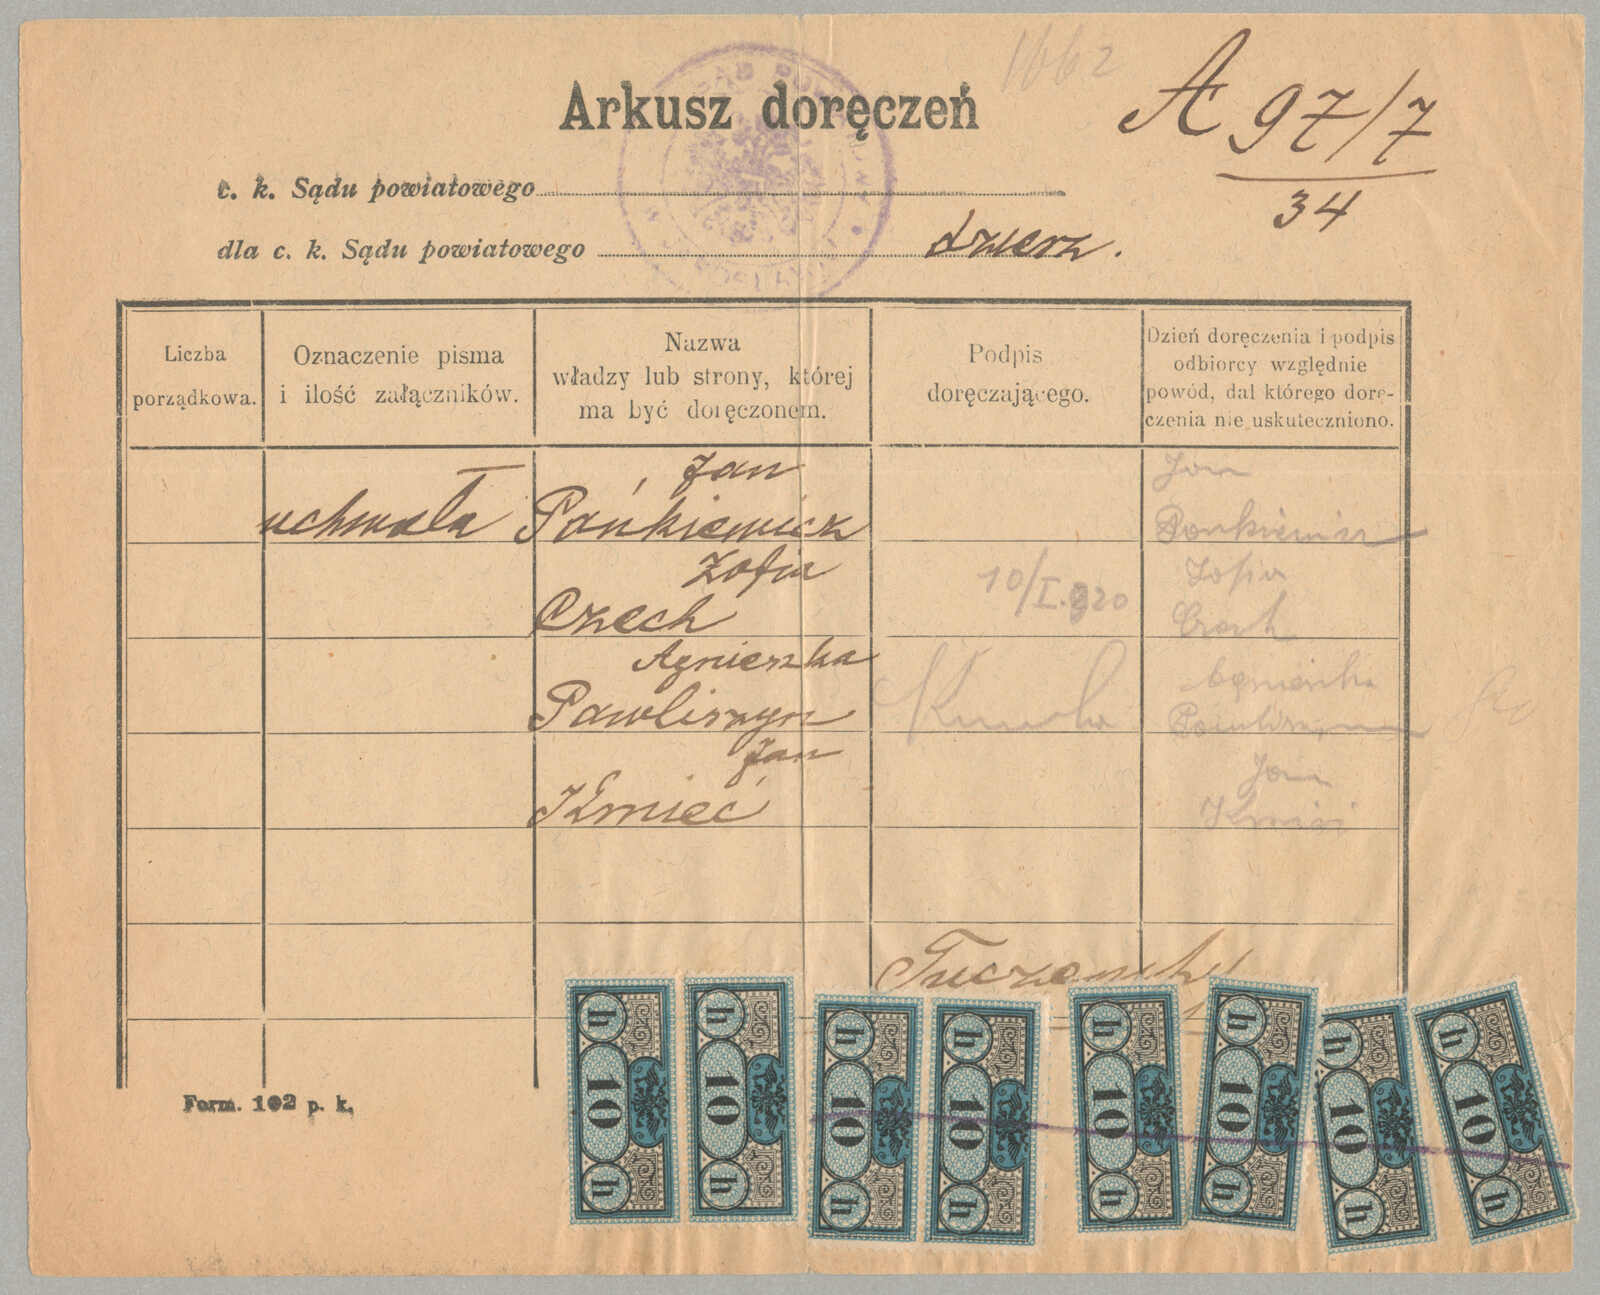 1662
Arkusz doręczeń
A 97/7
34
c. k. Sądu powiatowego
dla c. k. Sądu powiatowego
Liczba
porządkowa.
Oznaczenie pisma
i ilość załączników.
Nazwa
władzy lub strony, której
ma być doręczonem.
Podpis
doręczającego.
Dzień doręczenia i podpis
odbiorcy względnie
powód, dal którego dorę-
czenia nie uskuteczniono.
uchwała
Jan
Pańkiewicz
Jan
Zofia
Czech
10/I.920
Zofia
Czech
Agnieszka
Pawliszyn
Agnieszka
Jan
Kmieć
Jan
h 10 h
h 10 h
h 10 h
h 10 h
h 10 h
h 10 h
h 10 h
h 10 h
Form. 102 p. k.